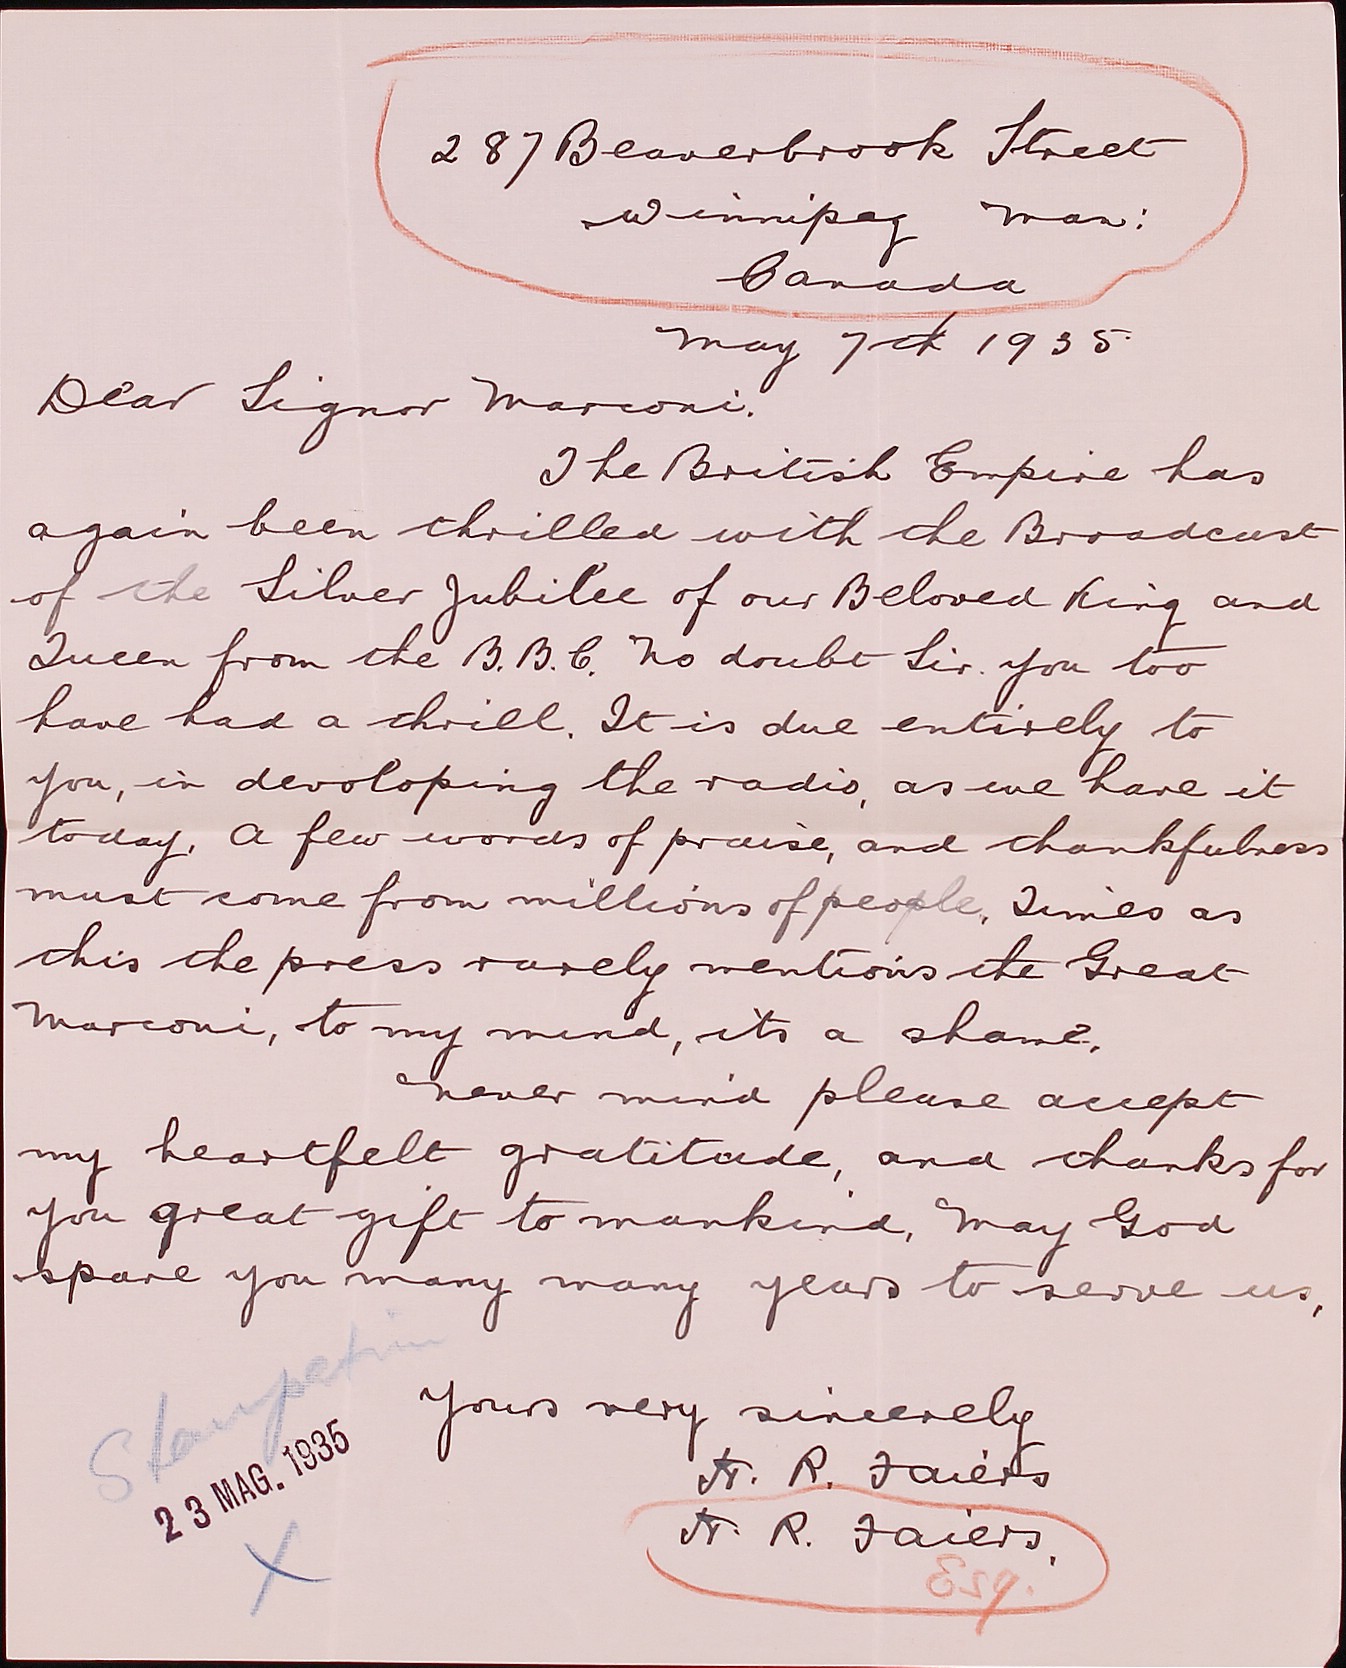 287 Beaverbrook Street
Winnipeg Man:
Canada
May 7th 1935.
Dear Signor Marconi.
The British Empire has
again been thrilled with the Broadcast
of the Silver Jubilee of our Beloved King and
Queen from the B.B.C. No doubt Sir. you too
have had a thrill. It is due entirely to
you, in devoloping the radio, as we have it
today. A few words of praise, and thankfulness
must come from millions of people. Times as
this the press rarely mentions the Great
Marconi, to my mind, its a shame.
Never mind please accept
my heartfelt gratitude, and thanks for
you great gift to mankind. May God
spare you many many years to serve us,
Yours very sincerely
R. Faiers
R. Faiers.
Esq.
23 MAG. 1935
X